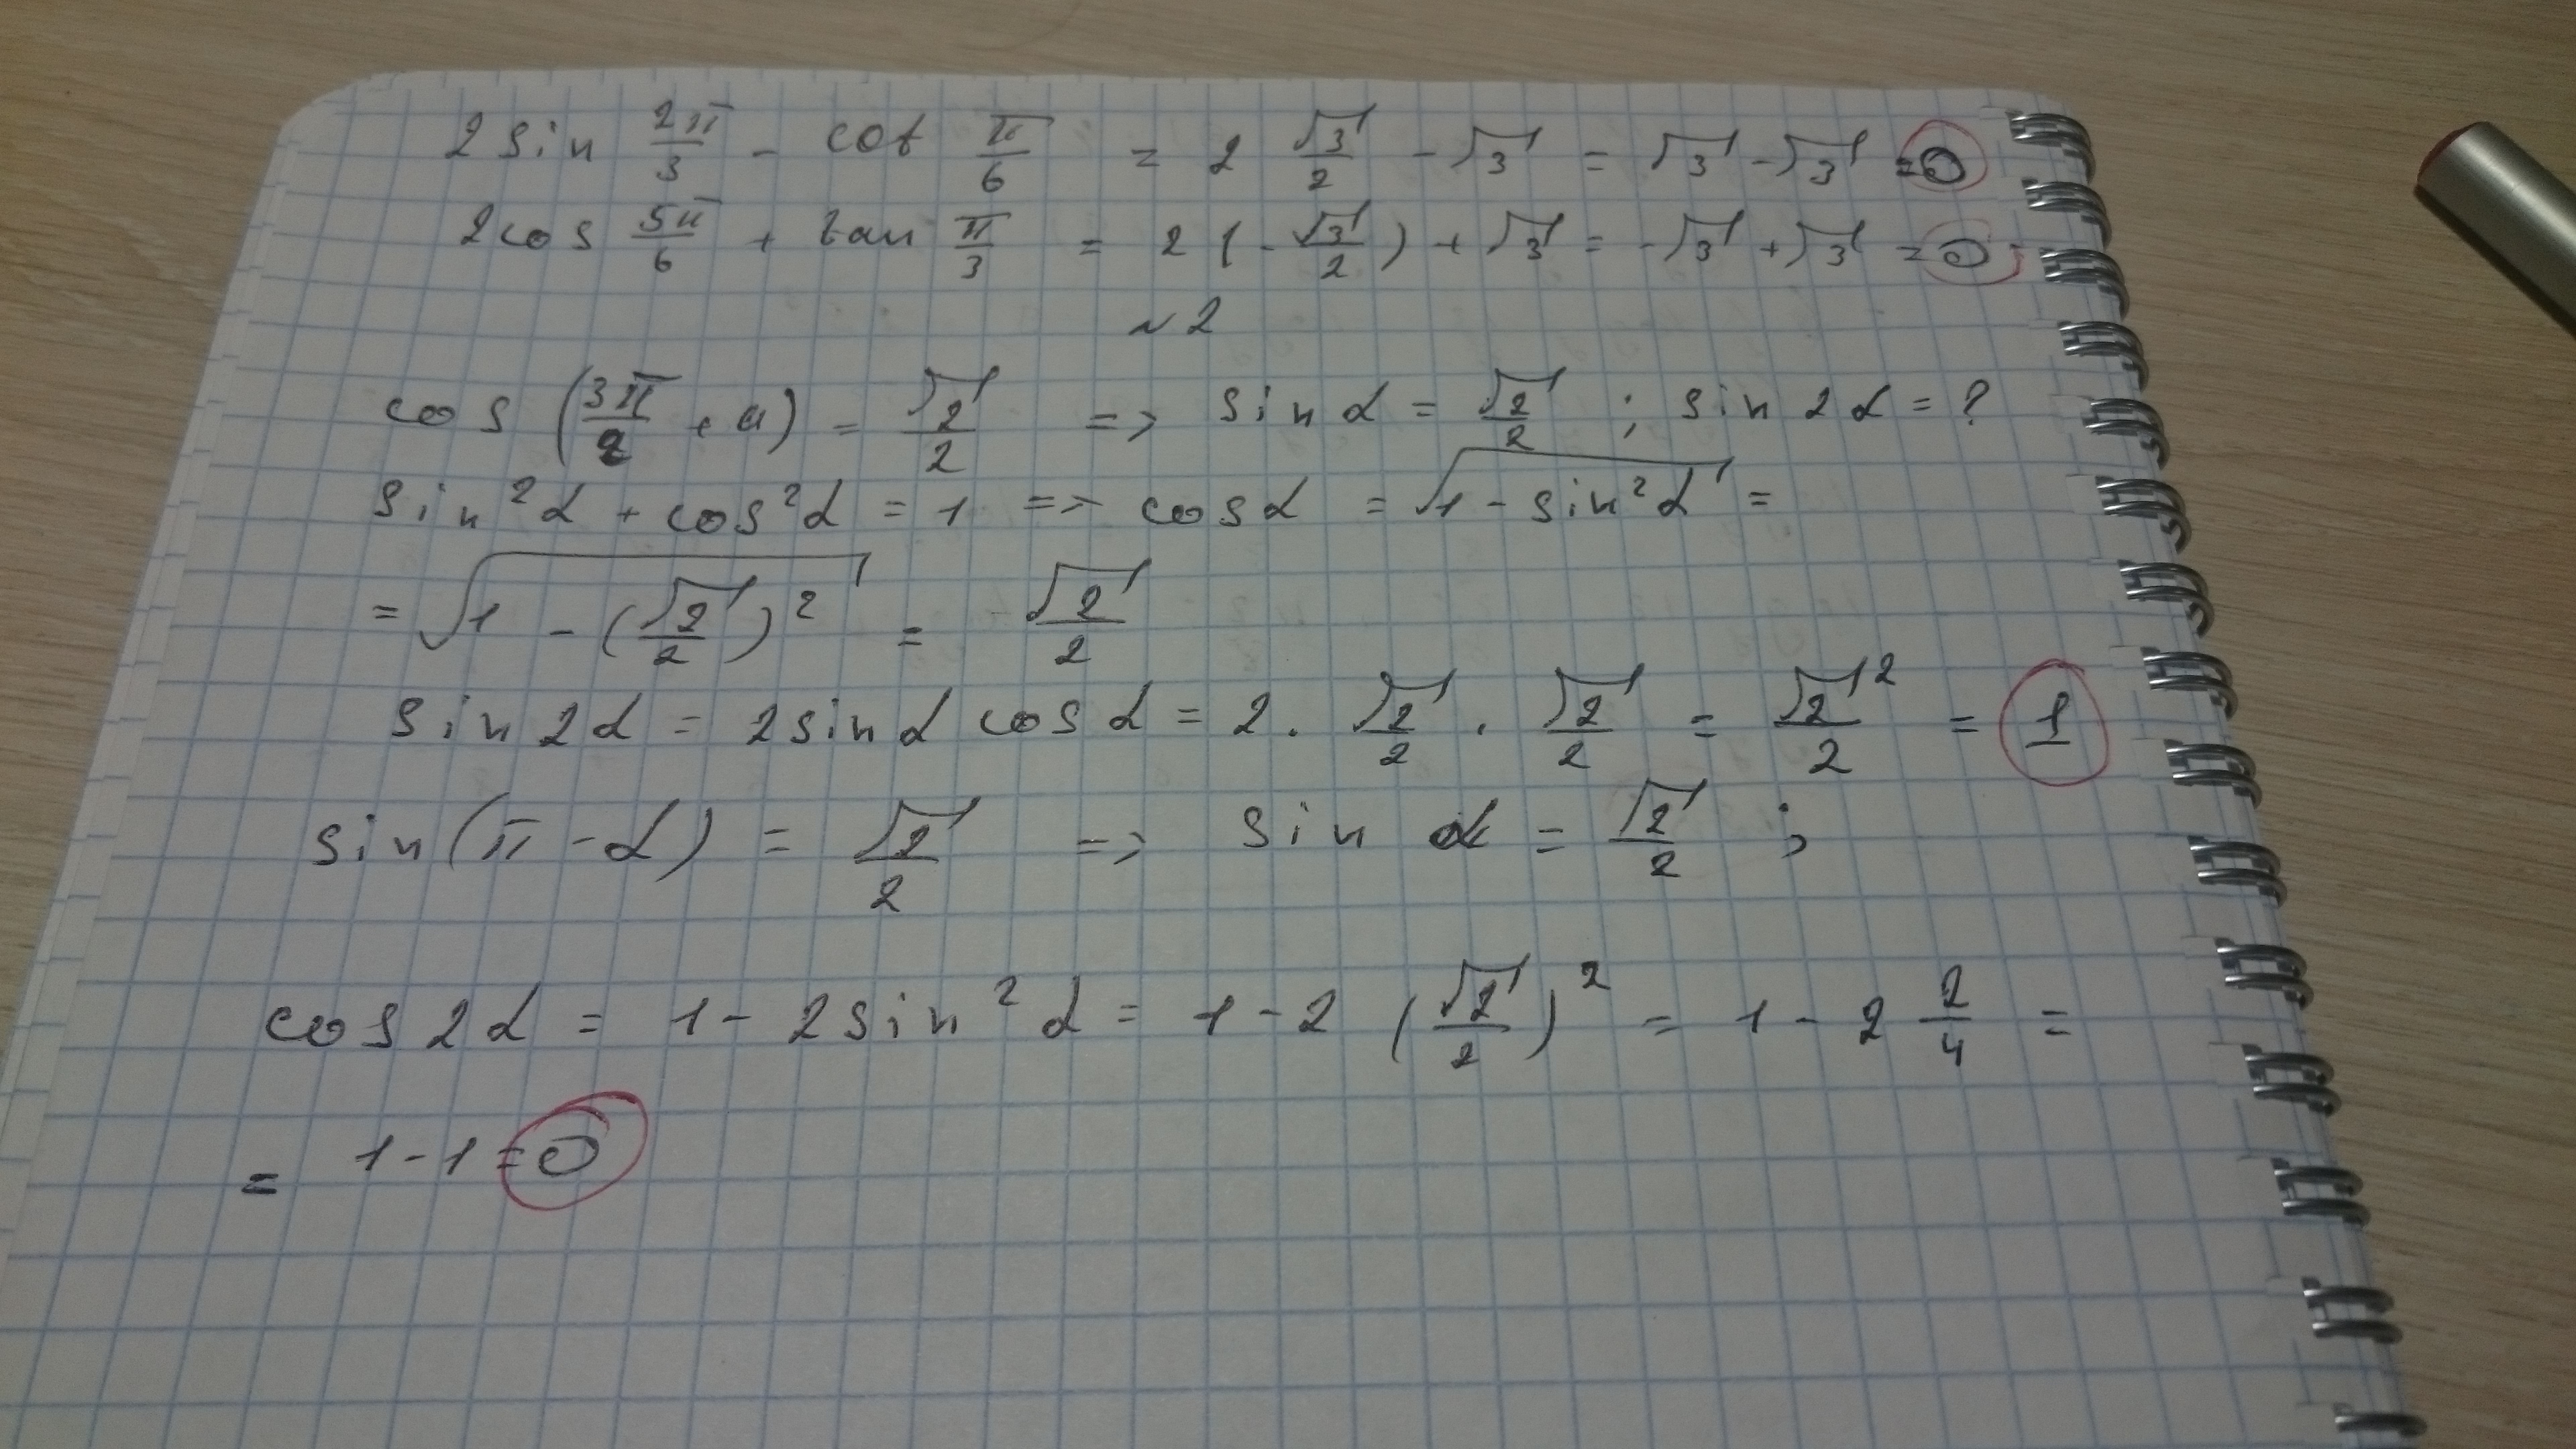 2 sin 2π/3 - cot π/6 = 2 √3/2 - √3 = √3 - √3 = 0
2 cos 5π/6 + tan π/3 = 2 (-√3/2) + √3 = -√3 + √3 = 0
~2
cos (3π/2 + α) = √2/2 => sin α = √2/2 ; sin 2α = ?
sin²α + cos²α = 1 => cos α = √(1 - sin²α) =
= √(1 - (√2/2)²) = √2/2
sin 2α = 2 sin α cos α = 2 · √2/2 · √2/2 = √2²/2 = 1
sin(π - α) = √2/2 => sin α = √2/2 ;
cos 2α = 1 - 2 sin²α = 1 - 2 (√2/2)² = 1 - 2 2/4 =
= 1 - 1 = 0